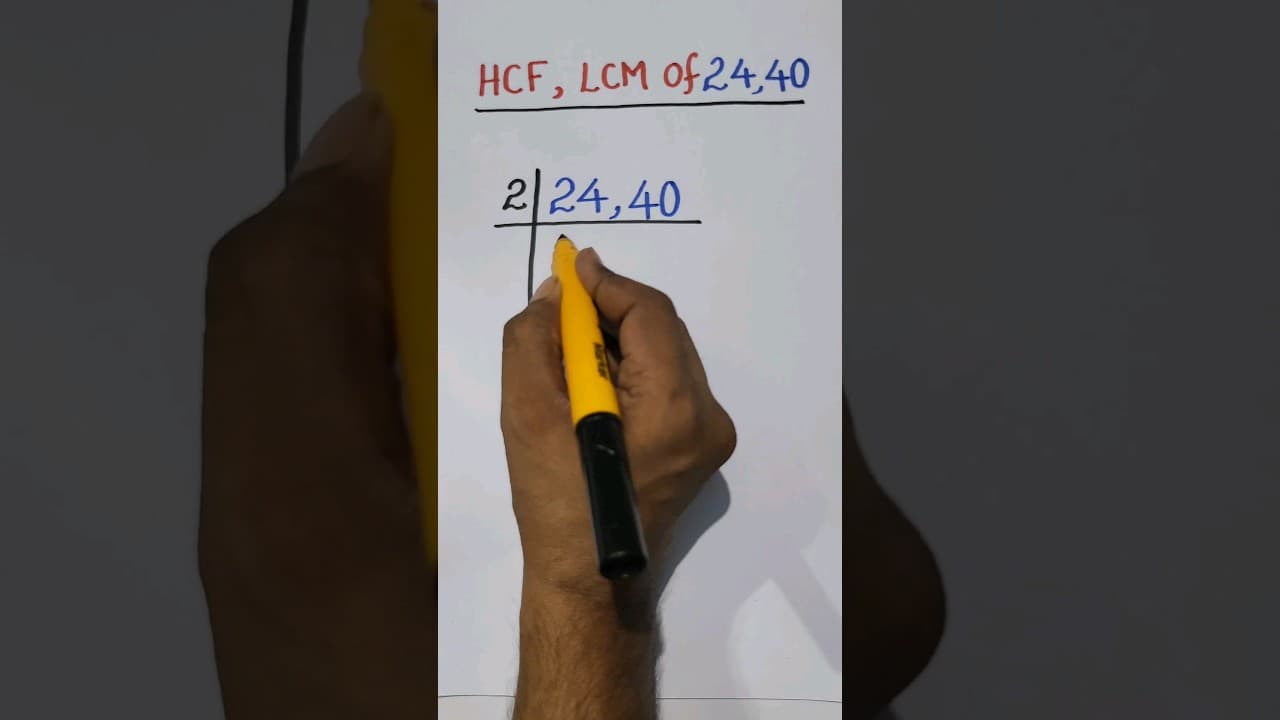 HCF, LCM of 24,40
2 24, 40